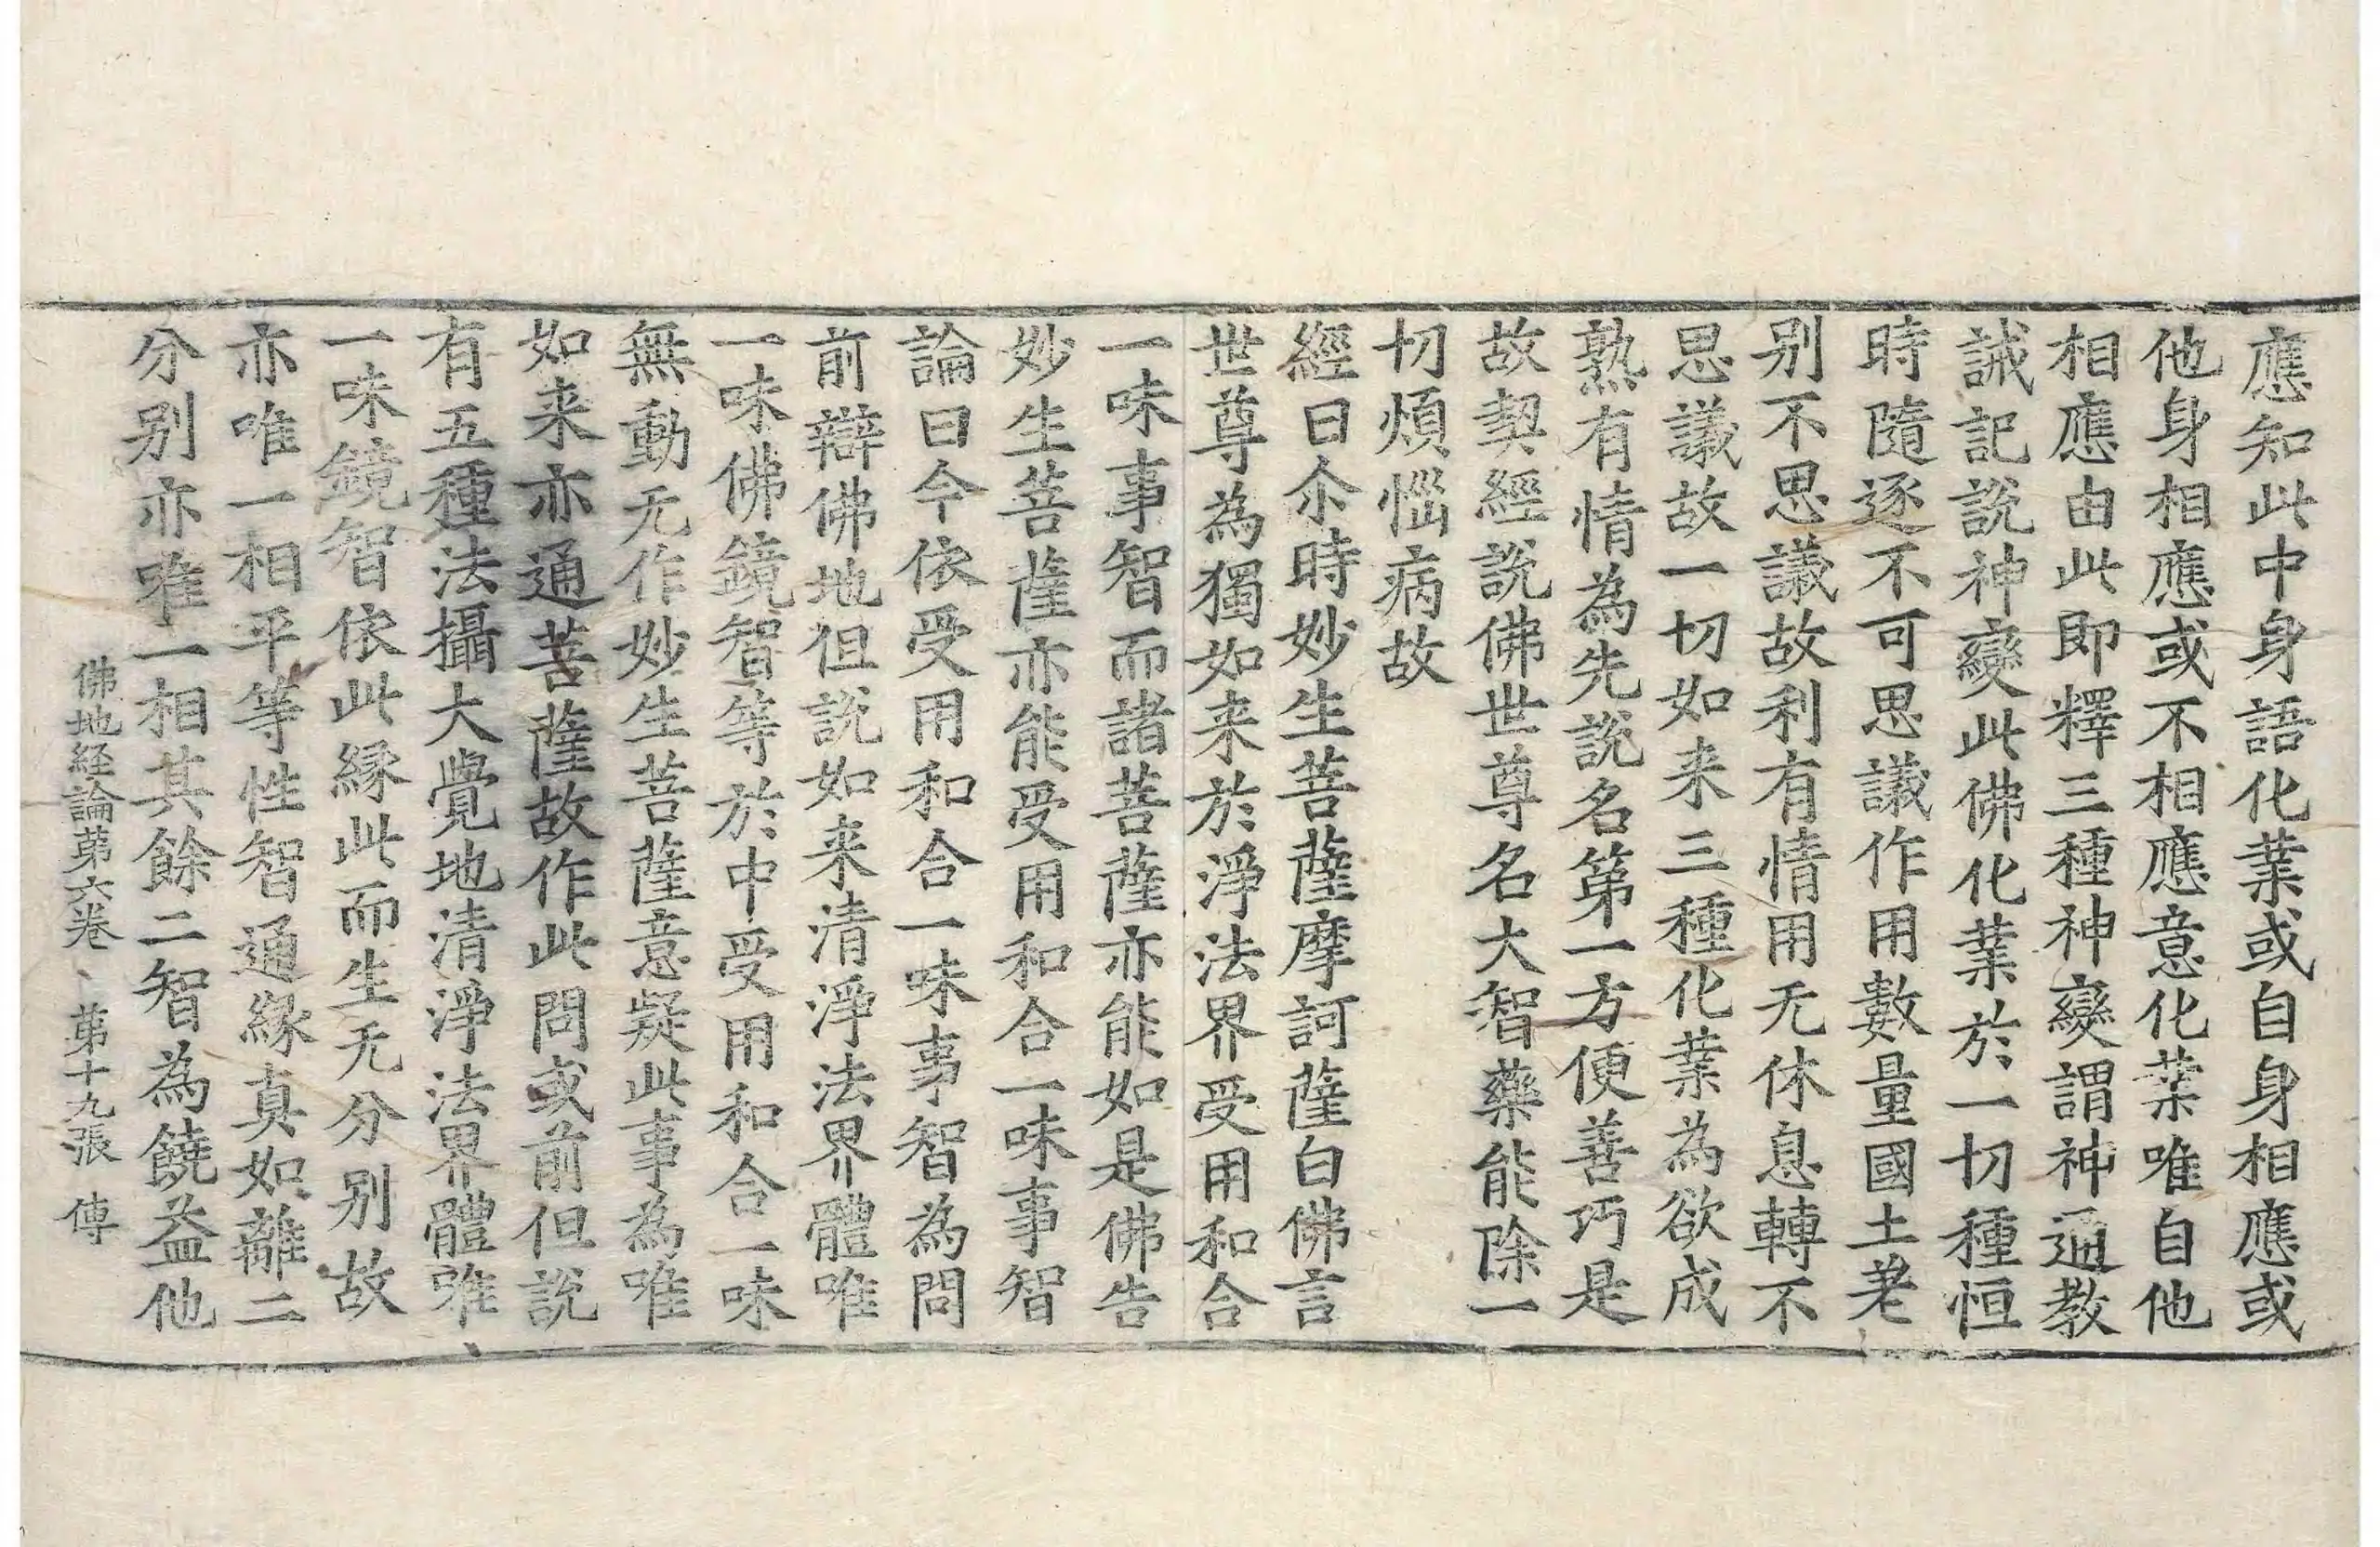 應知此中身語化業或自身相應或
他身相應或不相應意化業唯自他
相應由此即釋三種神變謂神通教
誡記說神變此佛化業於一切種恒
時隨逐不可思議作用數量國土差
别不思議故利有情用无休息轉不
思議故一切如来三種化業為欲成
熟有情為先說名第一方便善巧是
故契經說佛世尊名大智藥能除一
切煩惱病故
經曰尒時妙生菩薩摩訶薩白佛言
世尊為獨如来於淨法界受用和合
一味事智而諸菩薩亦能如是佛告
妙生菩薩亦能受用和合一味事智
論曰今依受用和合一味事智為問
前辯佛地但說如来清淨法界體唯
一味佛鏡智等於中受用和合一味
無動无作妙生菩薩意疑此事為唯
如来亦通菩薩故作此問或前但說
有五種法攝大覺地清淨法界體唯
一味鏡智依此緣此而生无分別故
亦唯一相平等性智通緣真如離二
分別亦唯一相其餘二智為饒益他
佛地経論第六卷、第十九張 傳